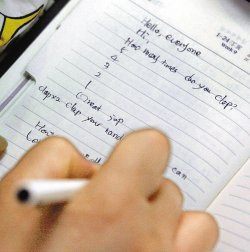 Hello, everyone
Hi
How many times do you clap?
5
4
3
2
1
Great job
clap your hand
How
can
1-24
Week 9